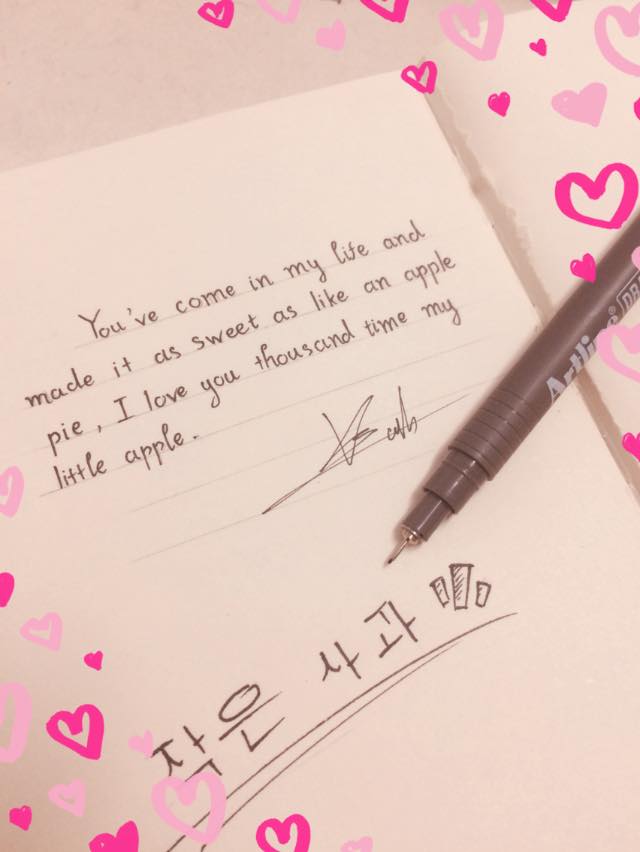 You've come in my life and
made it as sweet as like an apple
pie, I love you thousand time my
little apple.
Artline
작은 사과